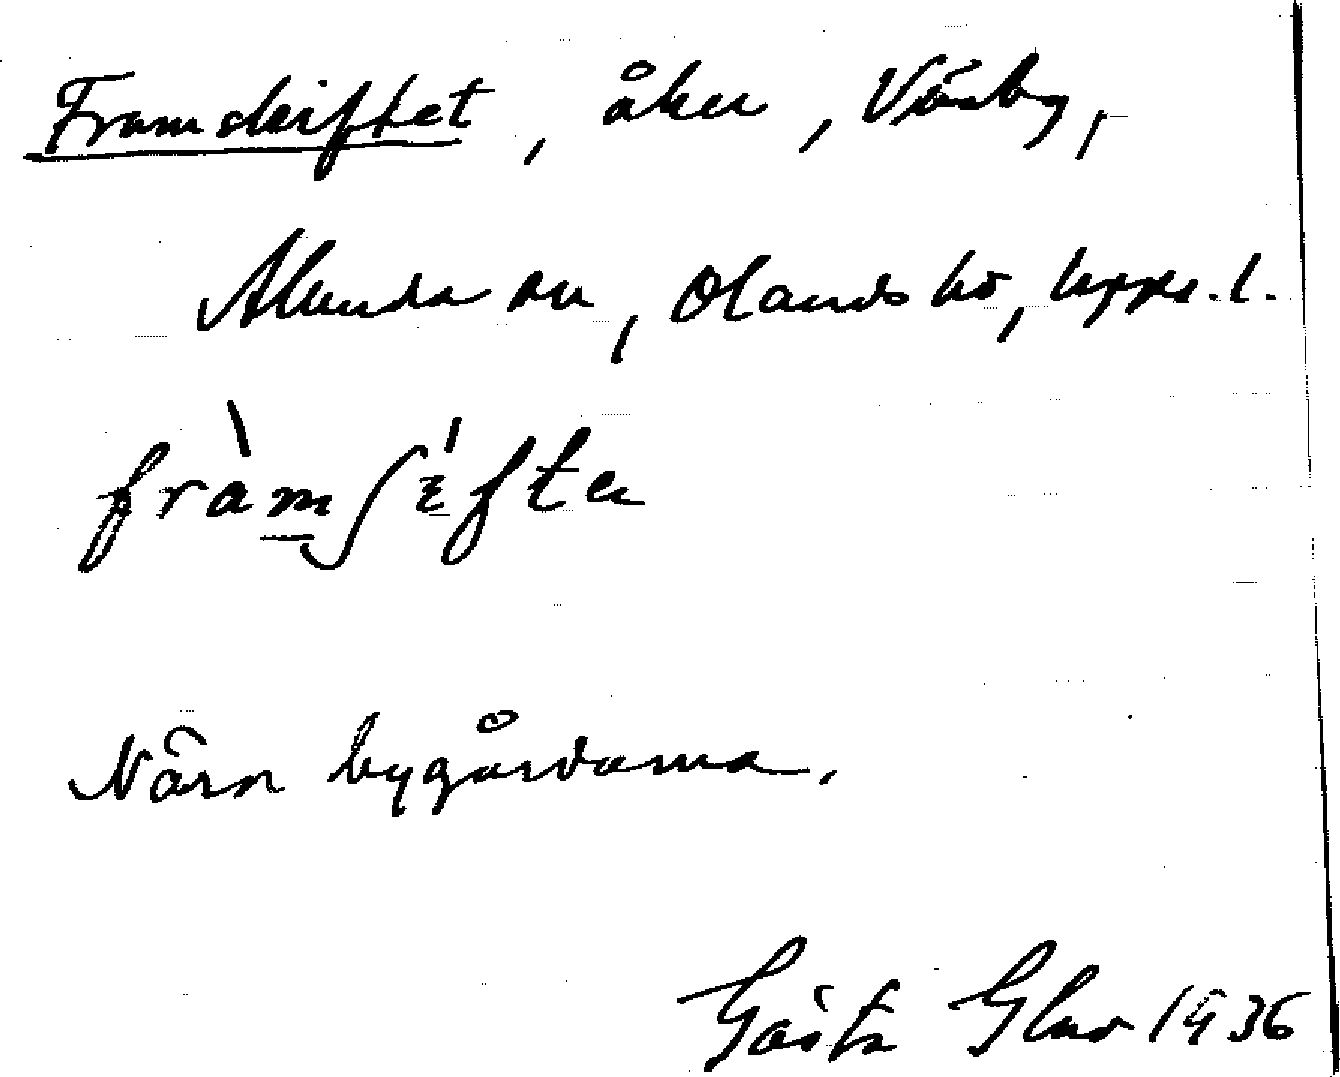 Framskiftet, åker, Väsby,
Alunda sn, Olands hd, Upps. l.
fràmʃi̇ftɛ
Nära bygårdarna.
Gösta Glas 1936